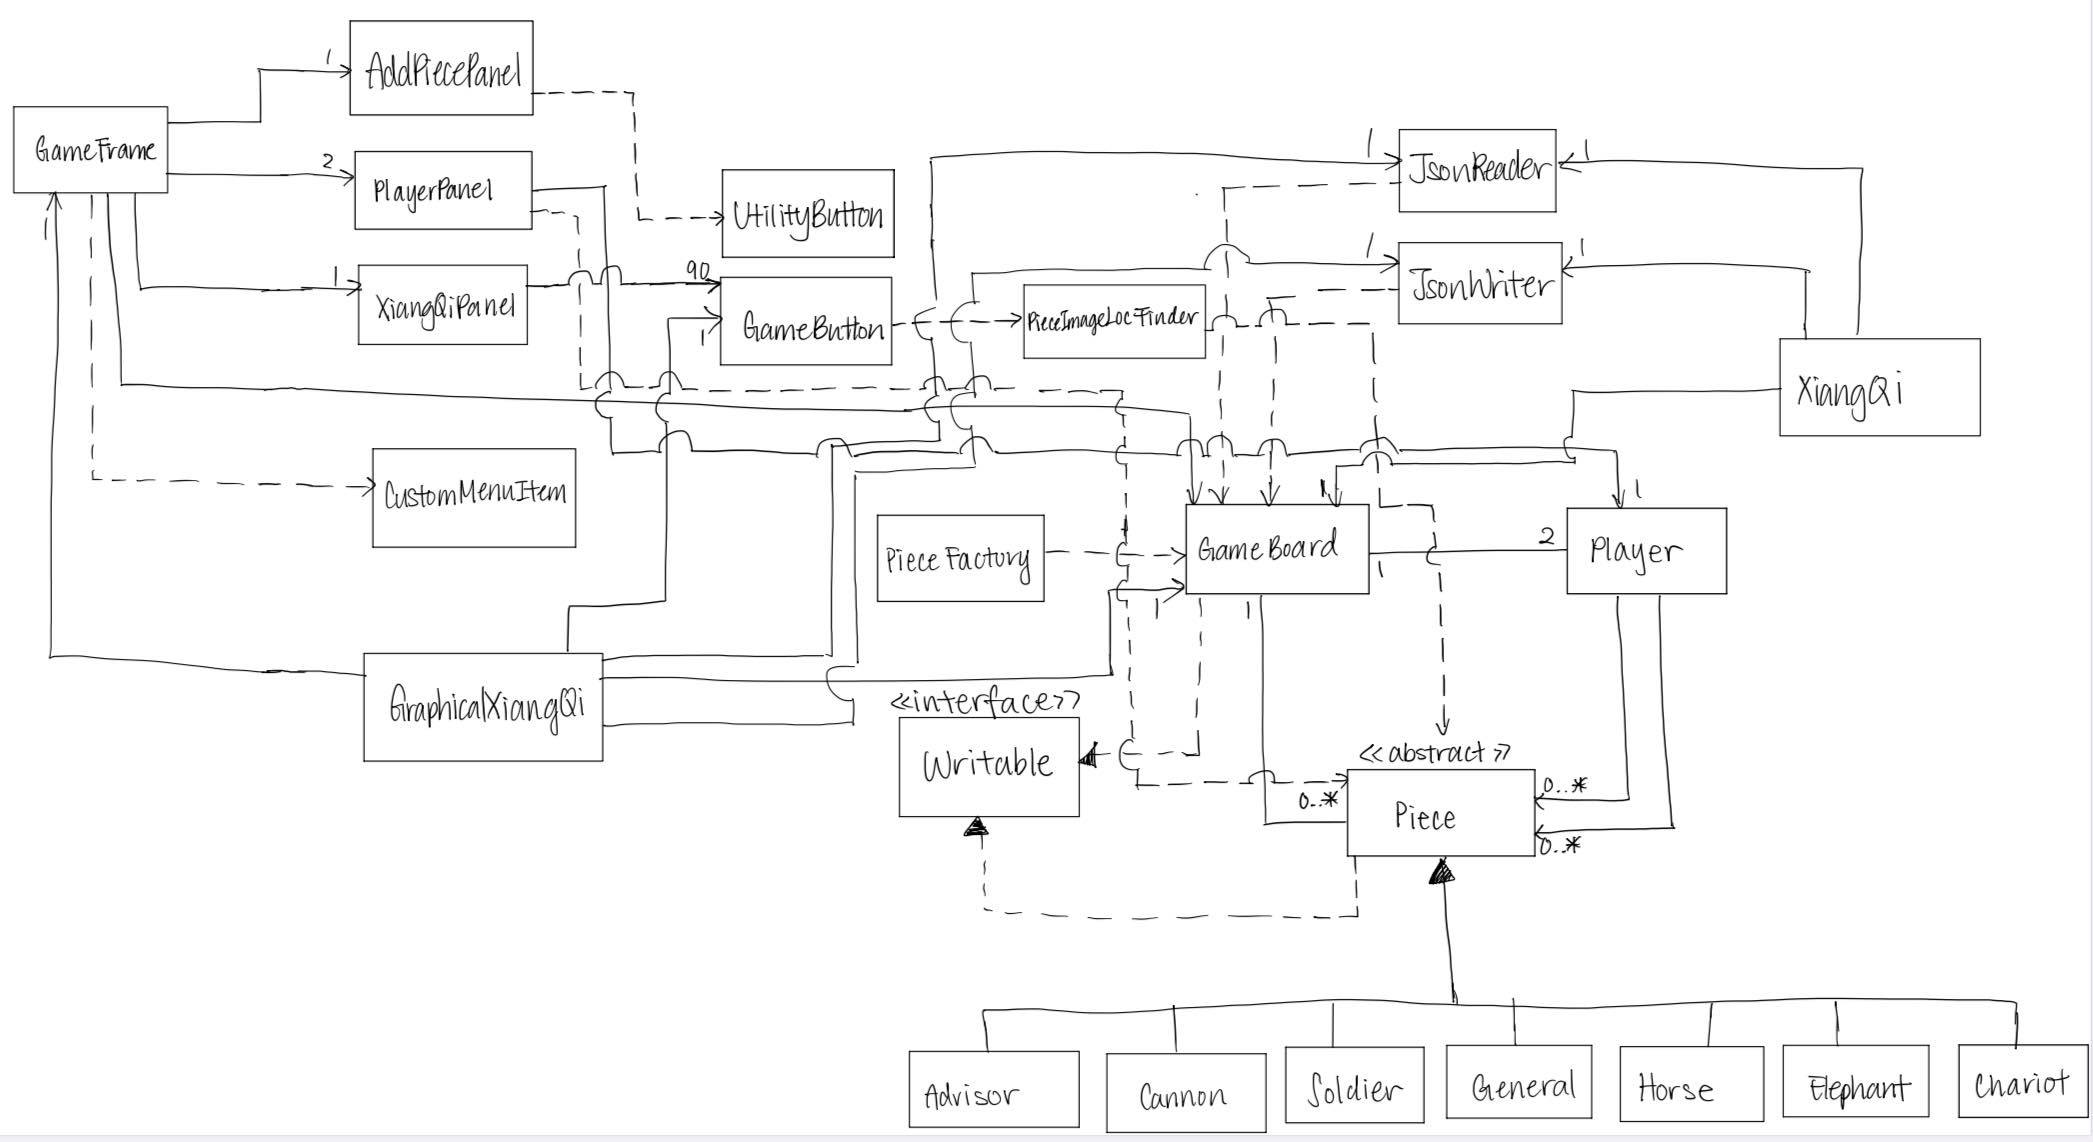 AddPiecePanel
1
GameFrame
2
PlayerPanel
1
JsonReader
1
UtilityButton
1
1
XiangQiPanel
90
GameButton
1
PieceImageLocFinder
1
JsonWriter
1
XiangQi
CustomMenuItem
1
1
Piece Factory
GameBoard
2
1
Player
1
1
GraphicalXiangQi
<<interface>>
Writable
<<abstract>>
Piece
0..*
0..*
0..*
Advisor
Cannon
Soldier
General
Horse
Elephant
Chariot